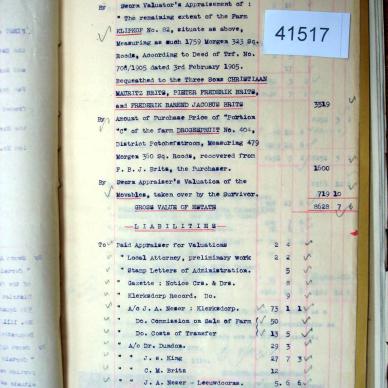 By Sworn Valuator's Appraisement of :
41517
"The remaining extent of the Farm
KLIPKOP No. 82, situate as above,
Measuring as such 1759 Morgen 323 Sq.
Roods, According to Deed of Trf. No.
708/1905 dated 3rd February 1905.
Bequeathed to the Three Sons CHRISTIAAN
MAURITZ BRITS, PIETER FREDERIK BRITS,
and FREDERIK BAREND JACOBUS BRITS 3519
By Amount of Purchase Price of "Portion
"C" of the farm DROGESPRUIT No. 404,
District Potchefstroom, Measuring 479
Morgen 360 Sq. Roods, recovered from
F. B. J. Brits, the Purchaser. 1600
By Sworn Appraiser's Valuation of the
Movables, taken over by the Survivor. 719 10
GROSS VALUE OF ESTATE 8628 7 6
LIABILITIES
To Paid Appraiser for Valuations 2 4
" Local Attorney, preliminary work 2 2
" Stamp Letters of Administration. 5
" Gazette : Notice Crs. & Drs. 8
" Klerksdorp Record. Do. 9
" A/c J. A. Neser : Klerksdorp. 73 1 1
Do. Commission on Sale of Farm 50
Do. Costs of Transfer 13 5
" A/c Dr. Dundon. 29 3
" " J. S. King 27 7 3
" " C. M. Brits 12
" " J. A. Neser - Leeuwdoorns. 5 6 6